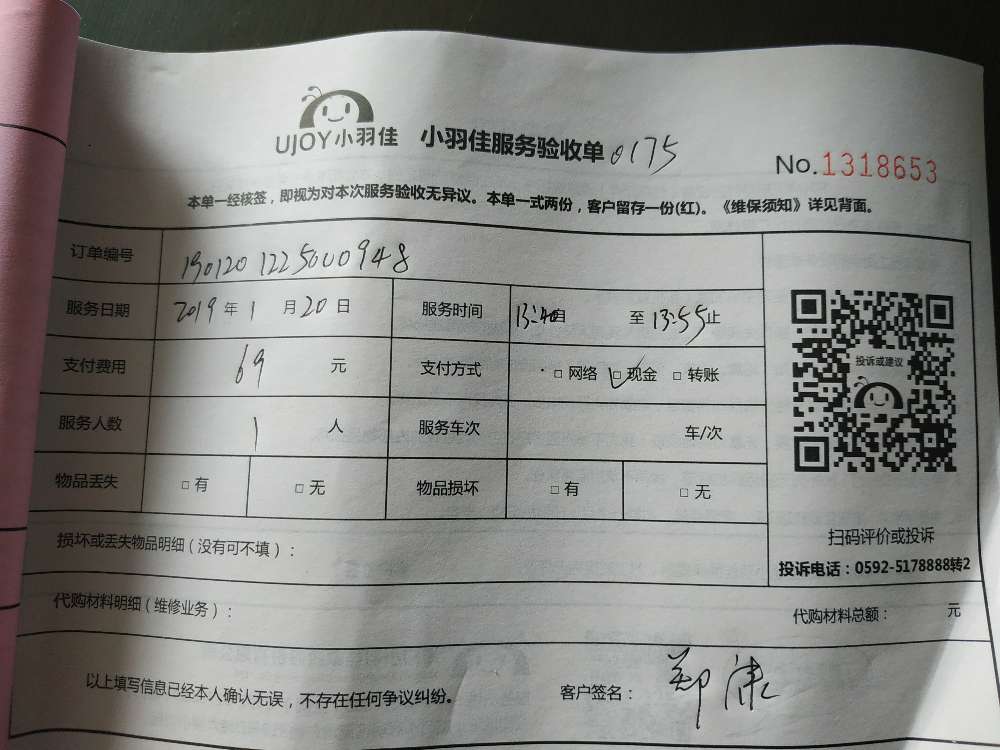 UJOY小羽佳 小羽佳服务验收单 0175
No.1318653
本单一经核签，即视为对本次服务验收无异议。本单一式两份，客户留存一份(红)。《维保须知》详见背面。
订单编号 190120122500948
服务日期 2019年1月20日 服务时间 13:40自 至 13:55止
支付费用 69 元 支付方式 □ 网络 □ 现金 □ 转账
投诉或建议
服务人数 1 人 服务车次 车/次
物品丢失 □ 有 □ 无 物品损坏 □ 有 □ 无
扫码评价或投诉
损坏或丢失物品明细（没有可不填）：
投诉电话：0592-5178888转2
代购材料明细（维修业务）： 代购材料总额： 元
以上填写信息已经本人确认无误，不存在任何争议纠纷。 客户签名： 郑